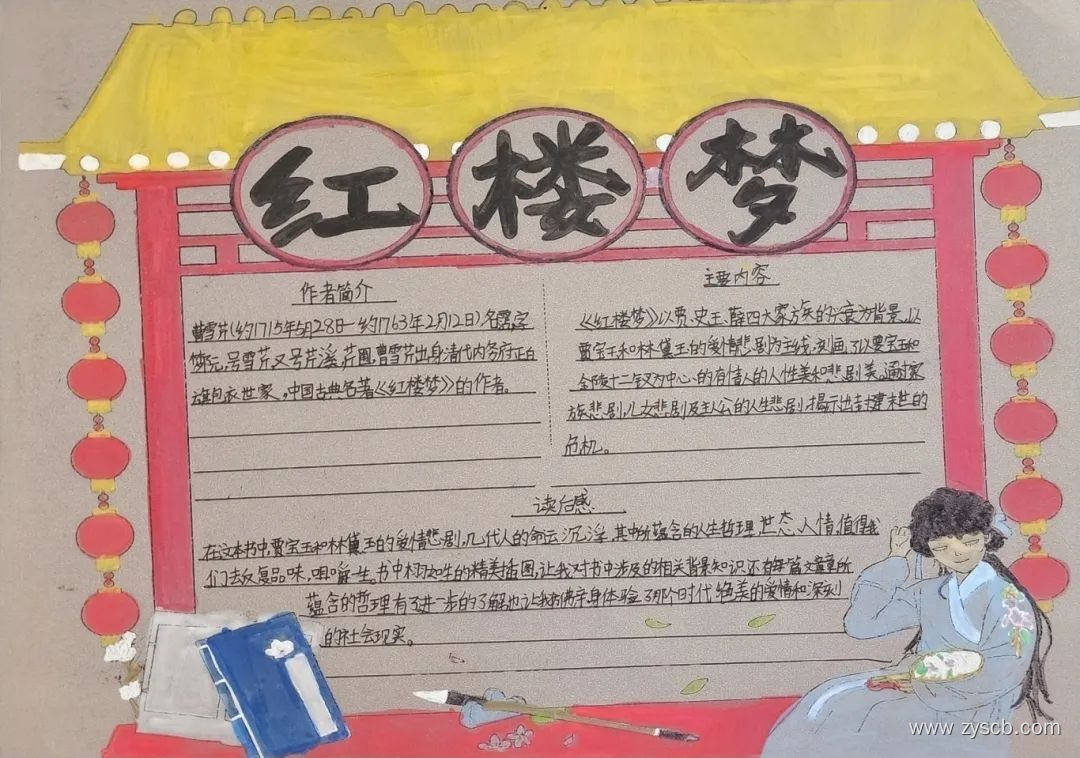 红楼梦
作者简介
曹雪芹(约1715年5月28日—约1763年2月12日),名霑,字
梦元,号雪芹,又号芹溪,芹圃,曹雪芹出身清代内务府正白
旗包衣世家,中国古典名著《红楼梦》的作者。
主要内容
《红楼梦》以贾、史、王、薛四大家族的兴衰为背景,以
贾宝玉和林黛玉的爱情悲剧为主线,刻画了以贾宝玉和
金陵十二钗为中心的有情人的人性美和悲剧美,通过家
族悲剧,儿女悲剧及主人公的人生悲剧,揭示出封建末世的
危机。
读后感
在这本书中,贾宝玉和林黛玉的爱情悲剧,几代人的命运沉浮,其中所蕴含的人生哲理,世态,人情,值得我
们去反复品味,咀嚼一生。书中栩栩如生的精美插图,让我对书中涉及的相关背景知识,还有每篇文章所
蕴含的哲理有了进一步的了解,也让我仿佛亲身体验了那个时代绝美的爱情和深刻
的社会现实。
www.zyscb.com